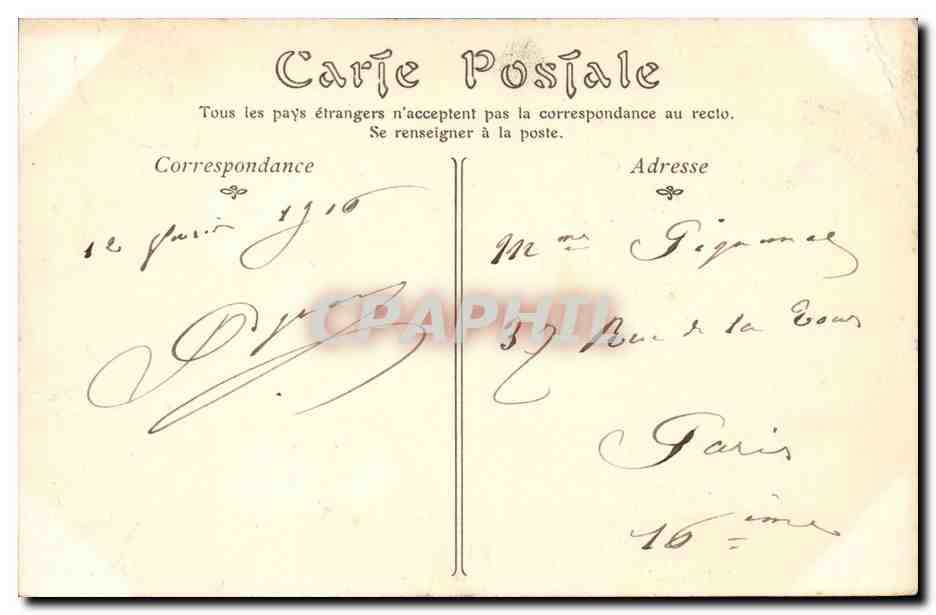 Carte Postale
Tous les pays étrangers n'acceptent pas la correspondance au recto.
Se renseigner à la poste.
Correspondance
Adresse
12 1916
CPAPHIL
Mme
37 Rue de la Tour
Paris
16ème